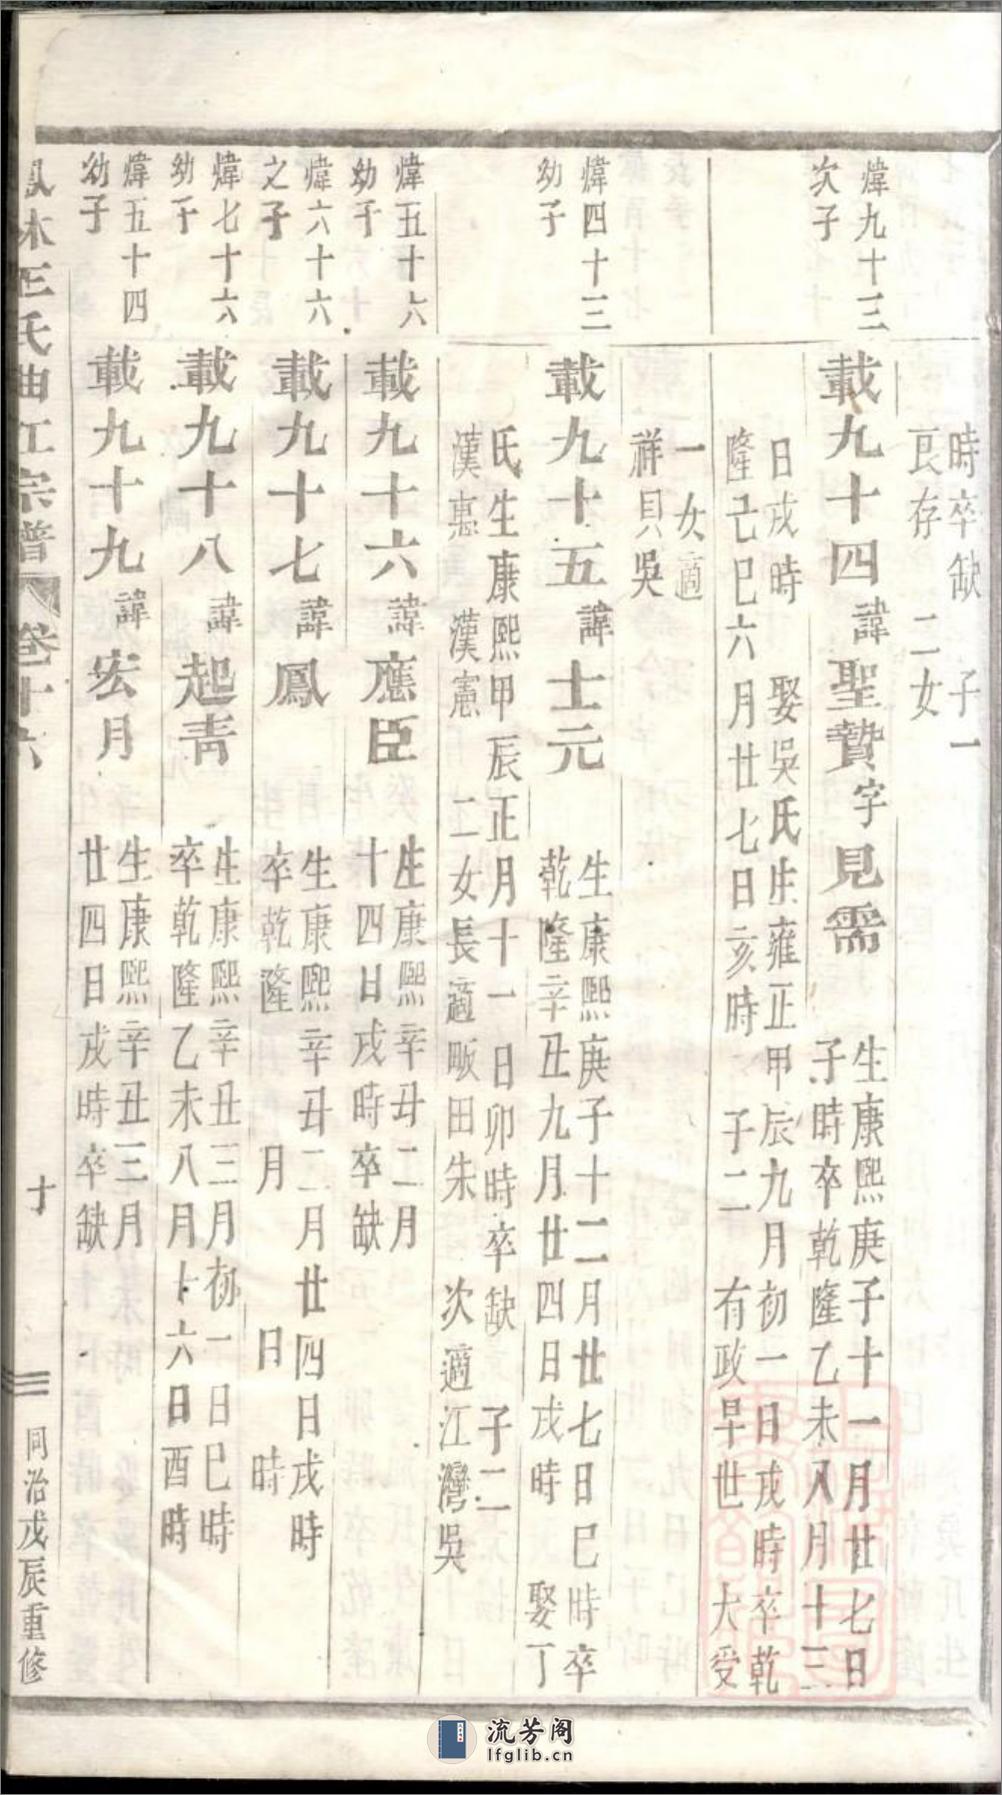 時卒缺　子一
哀存　二女
煒九十三
次子
載九十四諱聖贊字見需
生康熙庚子十一月廿七日
子時卒乾隆乙未八月十三
日戌時　娶吳氏生雍正甲辰九月初一日戌時卒乾
隆己巳六月廿七日亥時　子二　有政早世　大受
一女適
祥貝吳
煒四十三
幼子
載九十五諱士元
生康熙庚子十二月廿七日巳時卒
乾隆辛丑九月廿四日戌時　娶丁
氏生康熙甲辰正月十一日卯時卒缺　子二
漢惠　漢憲　二女長適畈田朱　次適江灣吳
煒五十六
幼子
載九十六諱應臣
生康熙辛丑二月
十四日戌時卒缺
煒六十六
之子
載九十七諱鳳
生康熙辛丑二月廿四日戌時
卒乾隆　月　日　時
煒七十六
幼子
載九十八諱起青
生康熙辛丑三月初一日巳時
卒乾隆乙未八月十六日酉時
煒五十四
幼子
載九十九諱宏月
生康熙辛丑三月
廿四日戌時卒缺
鳳林王氏曲江宗譜　卷十六　十　同治戊辰重修
流芳阁
lfglib.cn